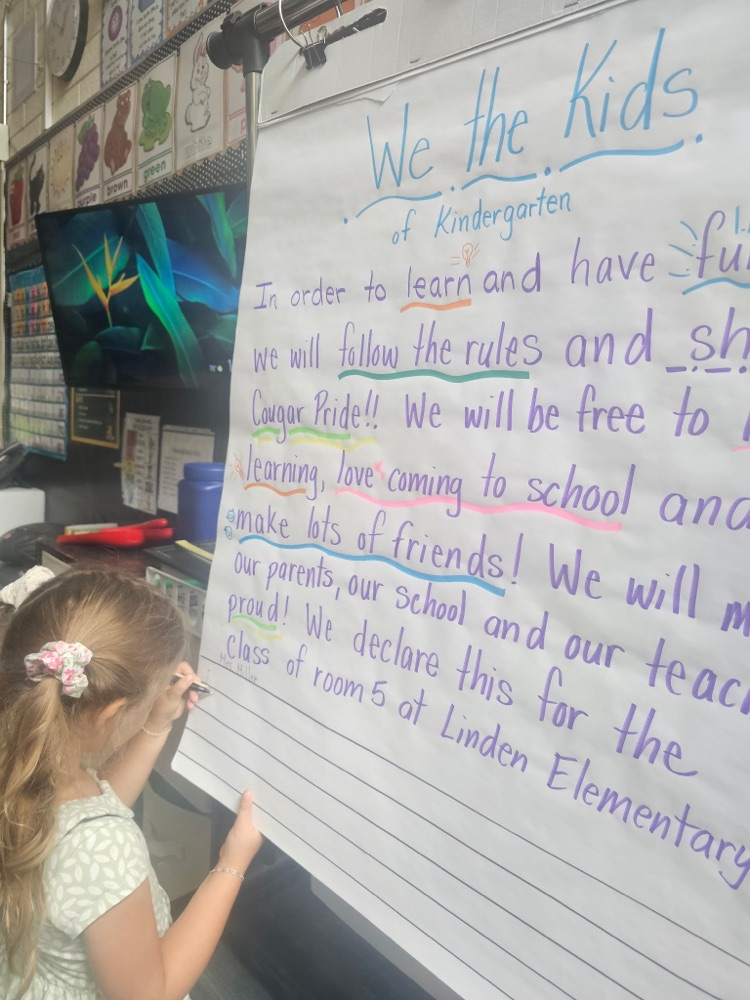 We the Kids
of Kindergarten
In order to learn and have
we will follow the rules and
Cougar Pride!! We will be free to
learning, love coming to school and
make lots of friends! We will
our parents, our school and our
proud! We declare this for the
class of room 5 at Linden Elementary
purple
brown
green